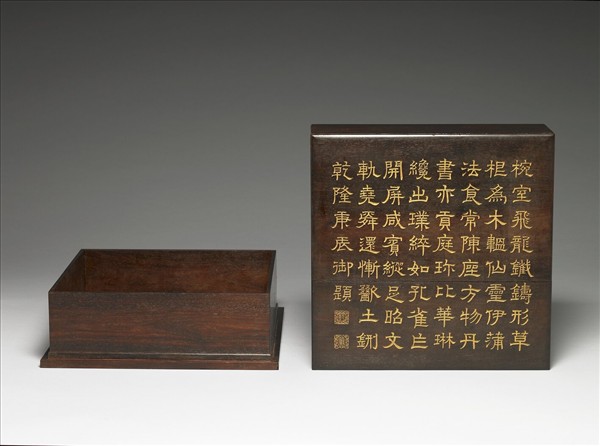 椀室飛龍鐵鑄形草
根為木韞仙靈伊蒲
法食常陳座方物丹
書亦貢庭珎比華琳
纔出璞綷如孔雀乍
開屏咸賓縱足昭文
軌堯舜還慚斸土鉶
乾隆庚辰御題